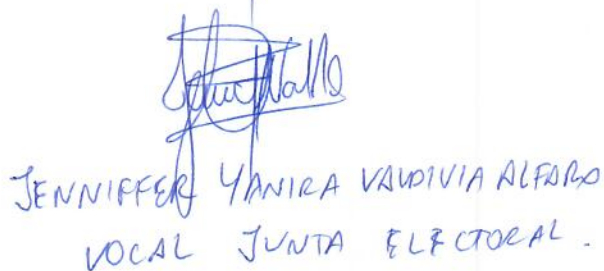 JENNIFFER YANIRA VALDIVIA ALFARO
VOCAL JUNTA ELECTORAL.